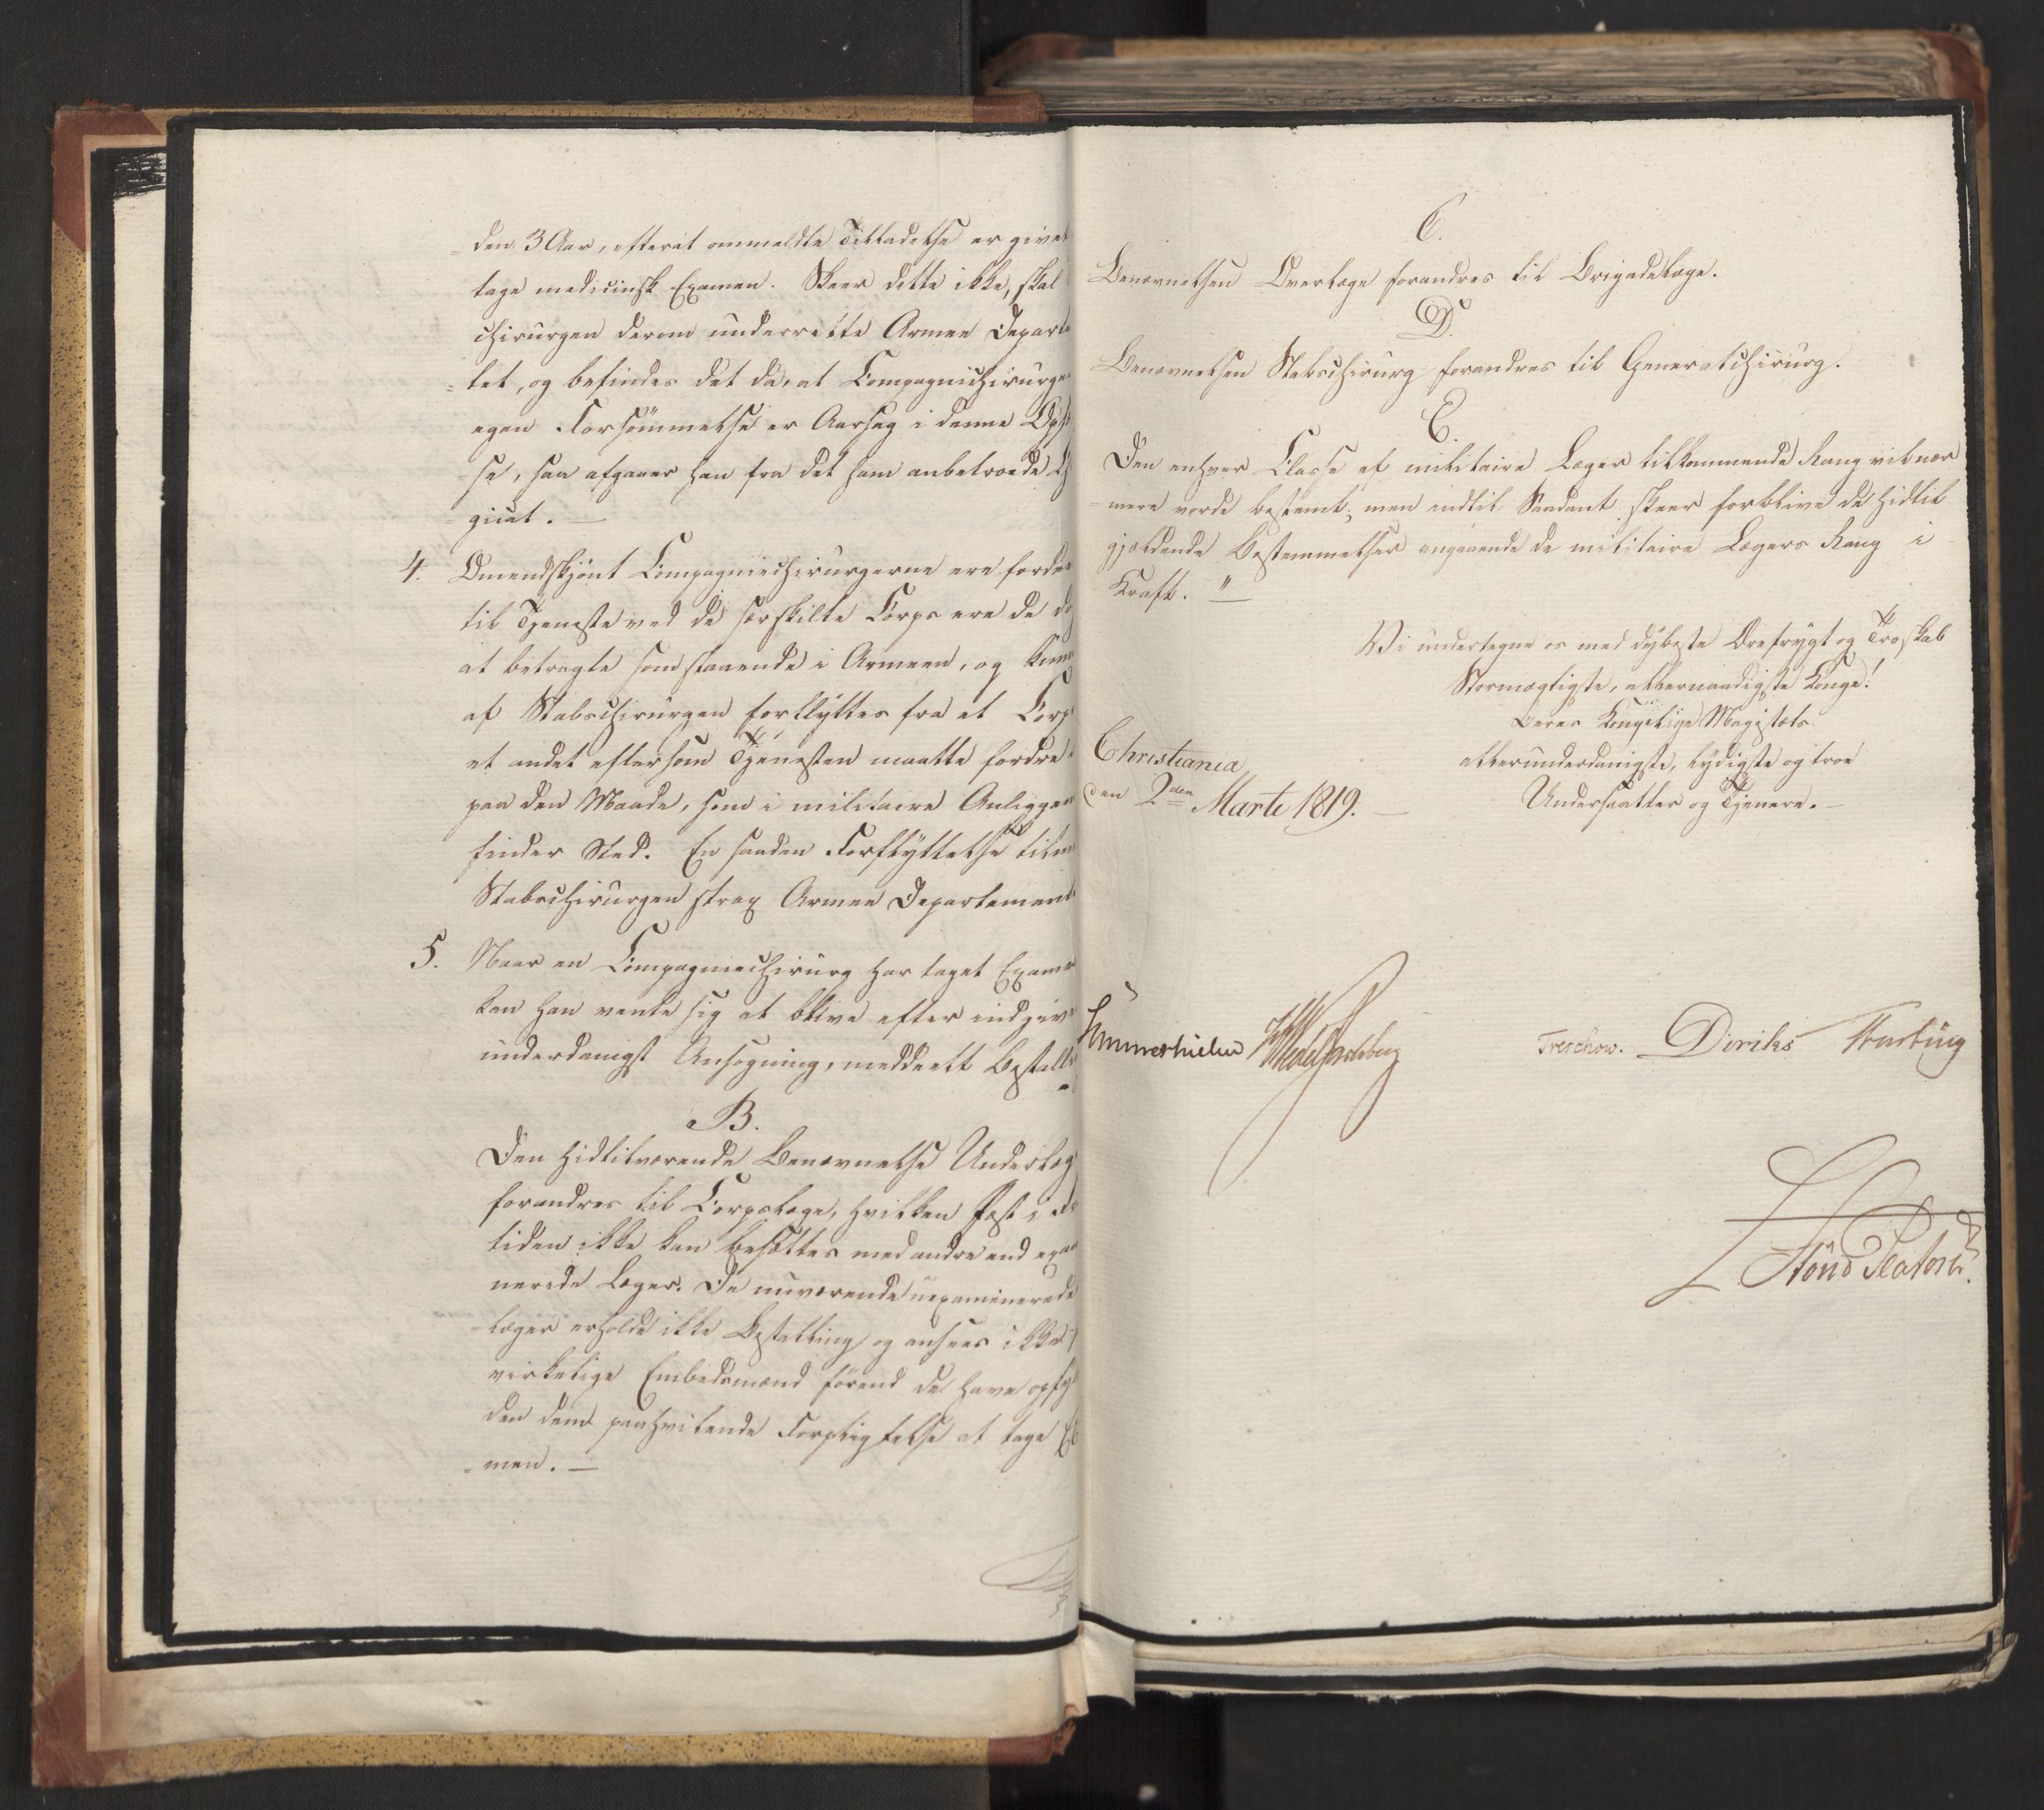 den 3 Aar, efterat anmeldte Tilladelse er givet
tage medicinsk Examen. Skeer dette ikke, skal
chirurgen derom underrette Armee Departe
=tet, og befindes det da, at Compagnichirurge
egen Forsömmelse er Aarsag i denne
se, saa afgaaer han fra det ham anbetroede
=giment. —
4. Omendskjönt Compagniechirurgerne ere
til Tjeneste ved de særskilte Corps ere de do
at betragte som staaende i Armeen, og kunn
af Stabschirurgen forflyttes fra et Corps
et andet eftersom Tjenesten maatte fordre
paa den Maade, som i militaire Anliggen
finder Sted. En saadan Forflyttelse
Stabschirurgen strax Armee Departement
5. Naar en Compagniechirurg har taget Examen
kan han vente sig at blive efter indgiven
underdanigst Ansøgning, meddeelt Bestall
B.
Den hidtilværende Benævnelse Underlæg
forandres til Corpslæge, hvilken Post i
tiden ikke kan besættes med andre end exam
nerede Læger. De nuværende uexaminerede
læger erholde ikke Bestalling og ansees ikke
virkelige Embedsmænd förend de have opfyl
den dem paahvilende Forpligtelse at tage Ex
=men. —
C.
Benævnelsen Overlæge forandres til Brigadelæge.
D.
Benævnelsen Stabschirurg forandres til Generalchirurg.
E.
Den enhver Classe af militaire Læger tilkommende Rang vil nær
=mere vorde bestemt; men indtil Saadant skeer forblive de hidtil
gjældende Bestemmelser angaaende de militaire Lægers Rang i
Kraft. " —
Vi undertegne os med dybeste Ærefrygt og Troskab
Stormægtigste, allernaadigste Konge!
Deres Kongelige Majestæts
allerunderdanigste, lydigste og troe
Undersaatter og Tjenere. —
Christiania,
den 2den Marti 1819. —
Hmmerhielm Wedel Jarlsberg Treschow. Diriks